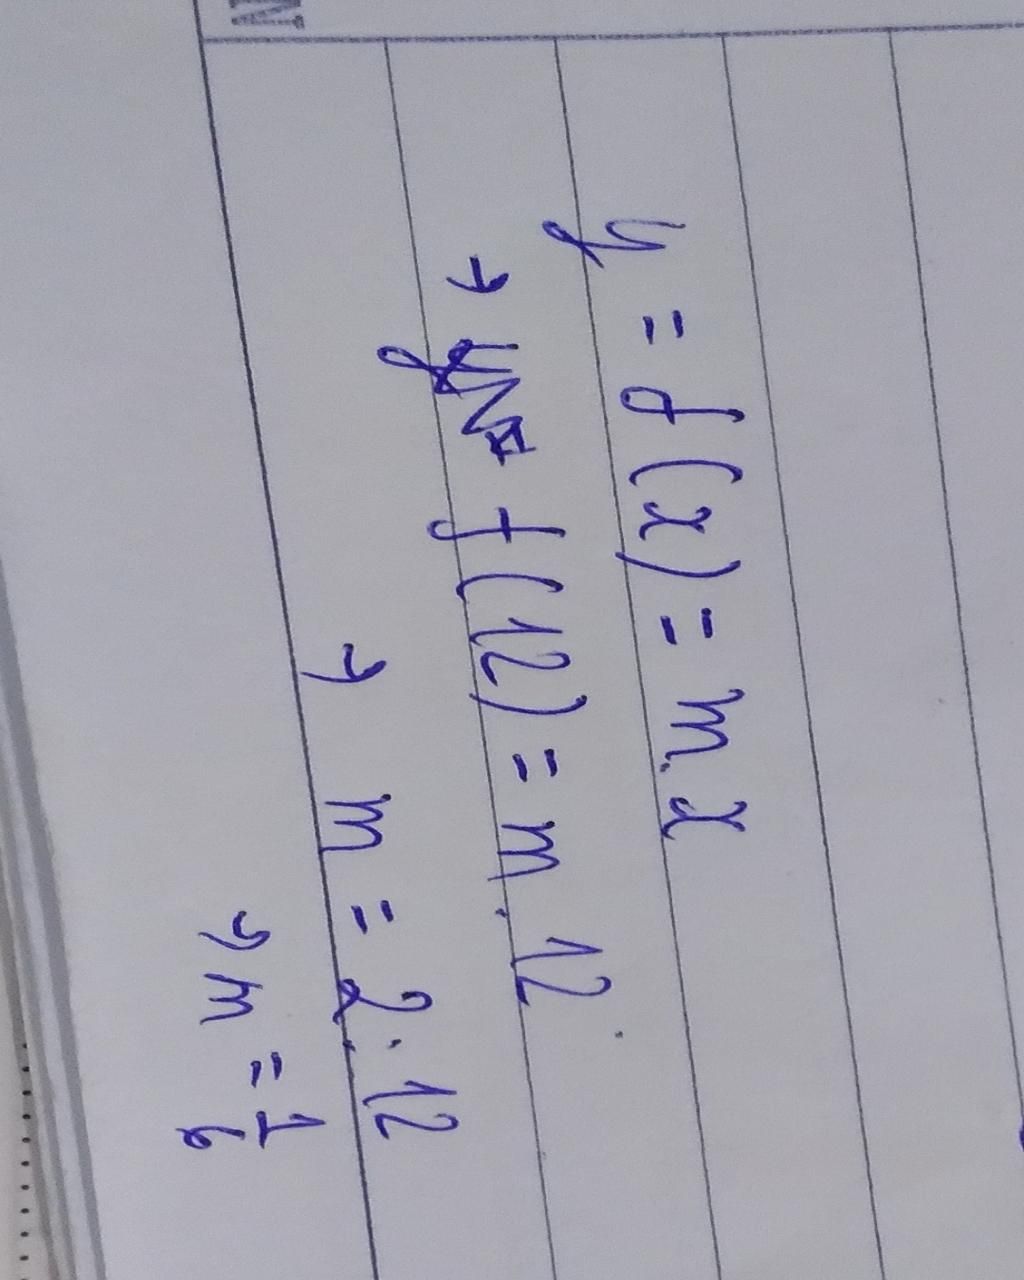 y = f(x) = m.x
→ f(12) = m.12
→ m = 2:12
→ m = 1/6